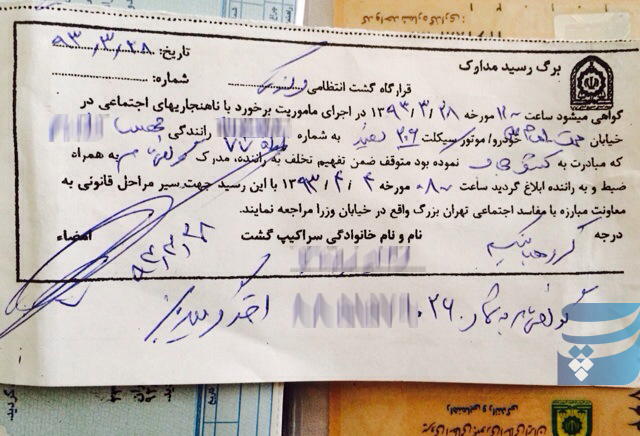 تاریخ: ۹۳/۳/۲۸
برگ رسید مدارک
شماره:
قرارگاه گشت انتظامی
گواهی میشود ساعت ۲۰ مورخه ۱۳۹۳/۳/۲۸ در اجرای ماموریت برخورد با ناهنجاریهای اجتماعی در
خیابان خودرو/موتورسیکلت ۲۰۶ سفید به شماره ۷۷ رانندگی
که مبادرت به نموده بود متوقف ضمن تفهیم تخلف به راننده، مدرک گواهینامه به همراه
ضبط و به راننده ابلاغ گردید ساعت ۰۸ مورخه ۱۳۹۳/۴/۴ با این رسید جهت سیر مراحل قانونی به
معاونت مبارزه با مفاسد اجتماعی تهران بزرگ واقع در خیابان وزرا مراجعه نمایند.
درجه نام و نام خانوادگی سراکیپ گشت امضاء
۹۳/۳/۲۸
گواهینامه به شماره اخذ گردید